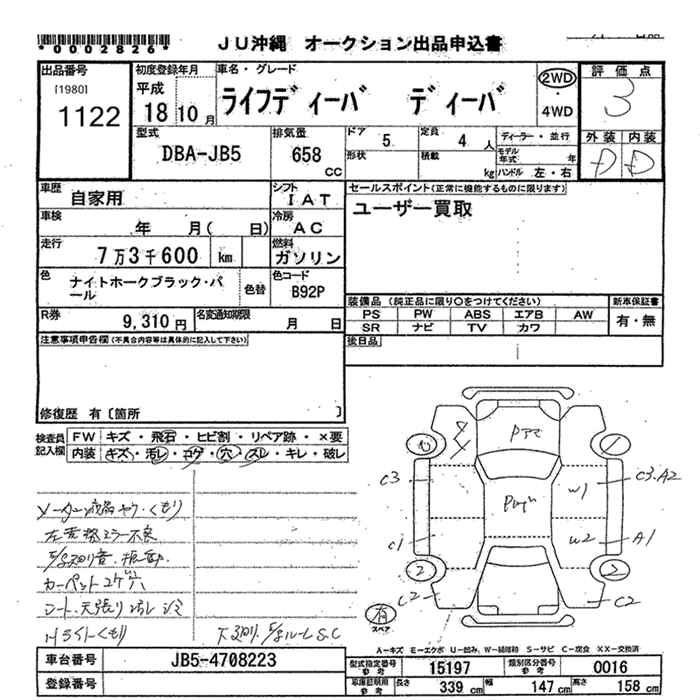 *0002826*
JU沖縄 オークション出品申込書
出品番号
[1980]
1122
初度登録年月
平成
18 10月
車名・グレード
ライフディーバ ディーバ
2WD
・
4WD
評価点
3
外装 内装
D D
型式
DBA-JB5
排気量
658 CC
ドア 5
定員 4 人
形状
積載 kg
ディーラー・並行
モデル年式 年
ハンドル 左・右
車歴 自家用
シフト IAT
車検 年 月( 日)
冷房 AC
走行 7万3千600 km
燃料 ガソリン
色 ナイトホークブラック・パール
色替
色コード B92P
R券 9,310円
名変通知期限 月 日
セールスポイント(正常に機能するものに限ります)
ユーザー買取
装備品(純正品に限り○をつけてください)
PS PW ABS エアB AW
SR ナビ TV カワ
新車保証書
有・無
後日品
注意事項申告欄(不具合内容等は具体的に記入して下さい)
修復歴 有〔箇所 〕
検査員記入欄
FW キズ・飛石・ヒビ割・リペア跡・×要
内装 キズ・汚レ・コゲ・穴・スレ・キレ・破レ
カーペットコゲ穴
Hライトくもり
C3
C3.A2
W1
W2
C1
A1
C2
C2
有
スペア
A-キズ E-エクボ U-凹み、W-補修和 S-サビ C-腐食 XX-交換済
車台番号 JB5-4708223
登録番号
型式指定番号 参考 15197
類別区分番号 参考 0016
車庫証明用 参考 長さ 339 cm 幅 147 cm 高さ 158 cm